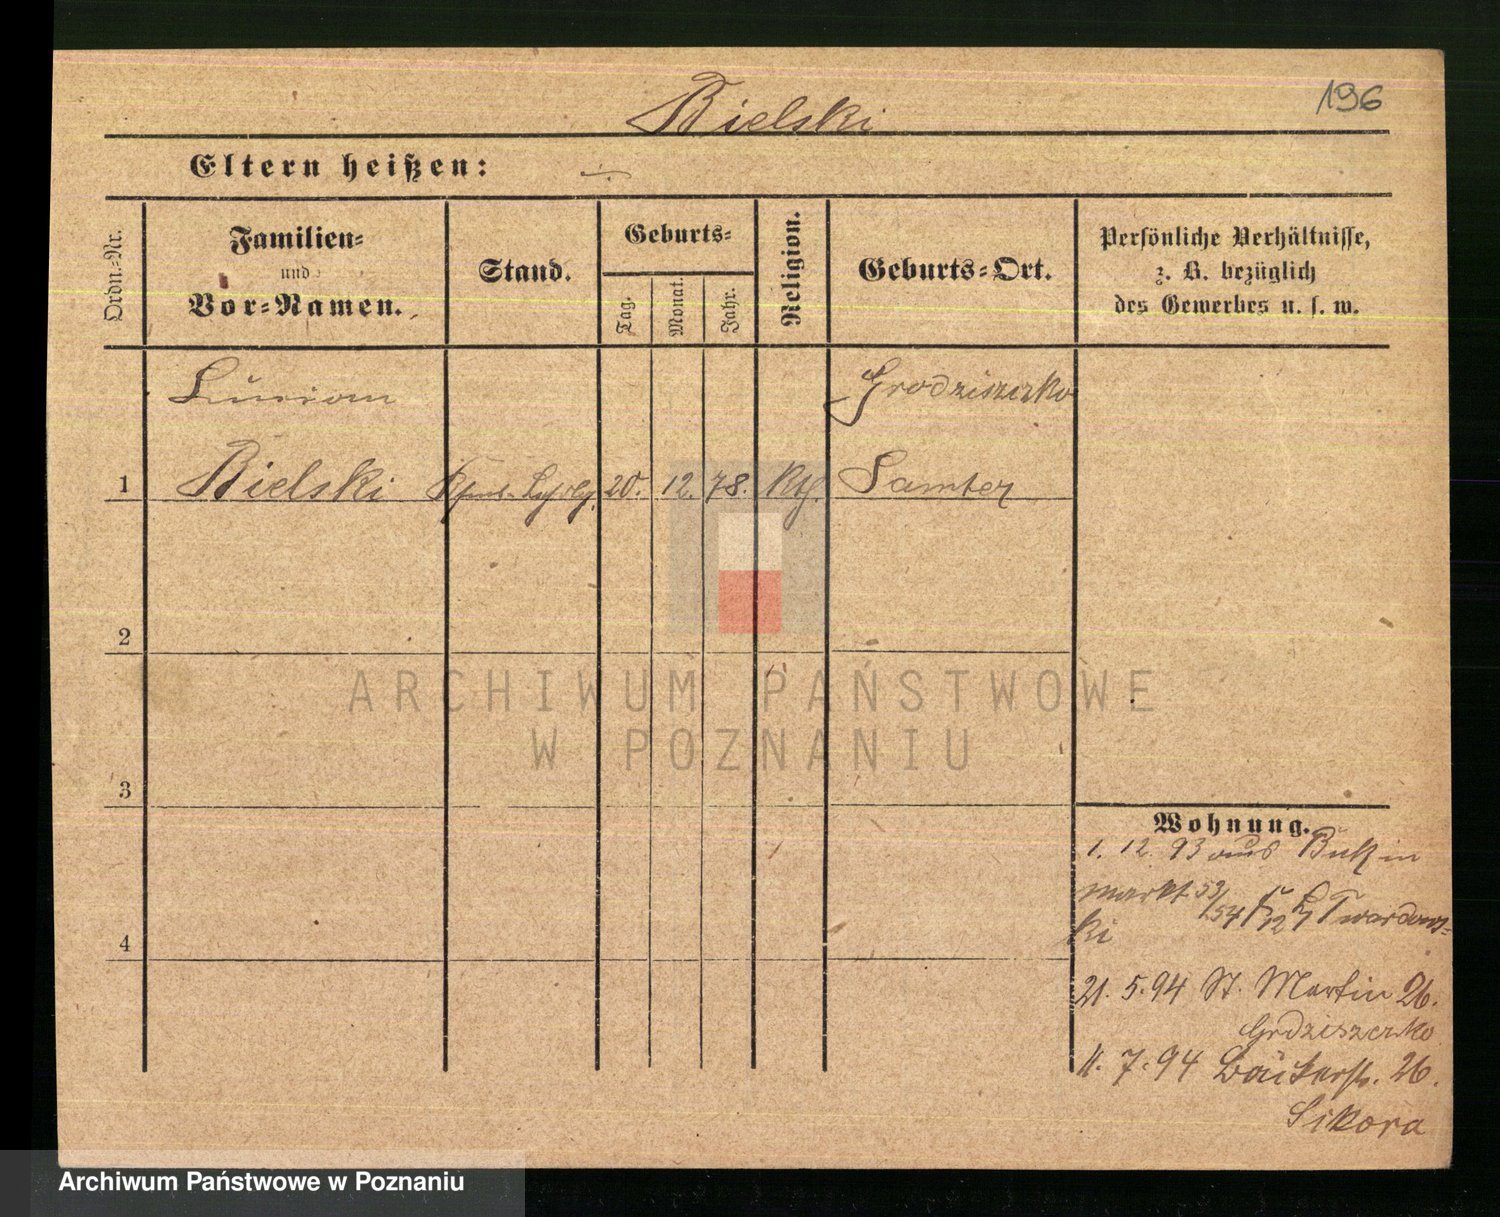 196
Bielski
Eltern heißen:
Ordn.-Nr.
Familien-
und
Vor-Namen.
Stand.
Geburts-
Tag.
Monat.
Jahr.
Religion.
Geburts-Ort.
Persönliche Verhältnisse,
z. B. bezüglich
des Gewerbes u. s. w.
Grodziszczko
1 Bielski 20. 12. 78. Kth. Samter
2
3
4
Wohnung.
1. 12. 93 aus Buk in
markt 53/54 Twardows-
ki
21. 5. 94 St. Martin 26.
Grdziszczko
11. 7. 94 Bäckerstr. 26.
Sikora
ARCHIWUM PAŃSTWOWE
W POZNANIU
Archiwum Państwowe w Poznaniu